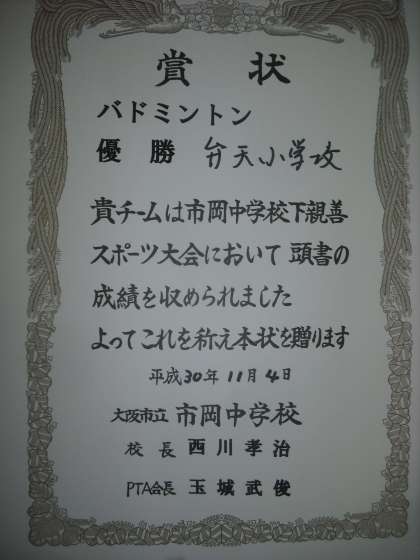 賞状
バドミントン
優勝 弁天小学校
貴チームは市岡中学校下親善
スポーツ大会において 頭書の
成績を収められました
よってこれを称え本状を贈ります
平成30年 11月 4日
大阪市立 市岡中学校
校長 西川孝治
PTA会長 玉城武俊